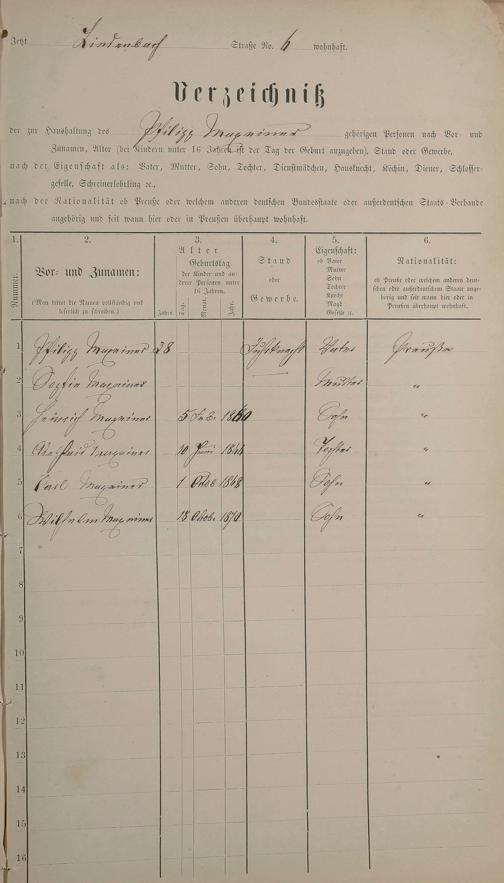 Jetzt Lindenbach Straße No. 6 wohnhaft.
Verzeichniß
der zur Haushaltung des Philipp gehörigen Personen nach Vor- und
Zunamen, Alter (bei Kindern unter 16 Jahren ist der Tag der Geburt anzugeben), Stand oder Gewerbe,
nach der Eigenschaft als: Vater, Mutter, Sohn, Tochter, Dienstmädchen, Hausknecht, Köchin, Diener, Schlosser-
geselle, Schreinerlehrling ꝛc.,
nach der Nationalität ob Preuße oder welchem anderen deutschen Bundesstaate oder außerdeutschen Staats-Verbande
angehörig und seit wann hier oder in Preußen überhaupt wohnhaft.
1. 2. 3. 4. 5. 6.
Nummer.
Vor- und Zunamen:
(Man bittet die Namen vollständig und
leserlich zu schreiben.)
Alter
Geburtstag
der Kinder und an-
derer Personen unter
16 Jahren.
Jahre. Tag. Monat. Jahr.
Stand
oder
Gewerbe.
Eigenschaft:
ob Vater
Mutter
Sohn
Tochter
Knecht
Magd
Geselle ꝛc.
Nationalität:
ob Preuße oder welchem anderen deut-
schen oder außerdeutschen Staate ange-
hörig und seit wann hier oder in
Preußen überhaupt wohnhaft.
1 Philipp 38 Vater Preuße
2 Sophie Mutter "
3 Heinrich 5 1860 Sohn "
4 10 Juni Tochter "
5 Carl 1 1868 Sohn "
6 Wilhelm 18 Octobr. 1870 Sohn "
7
8
9
10
11
12
13
14
15
16